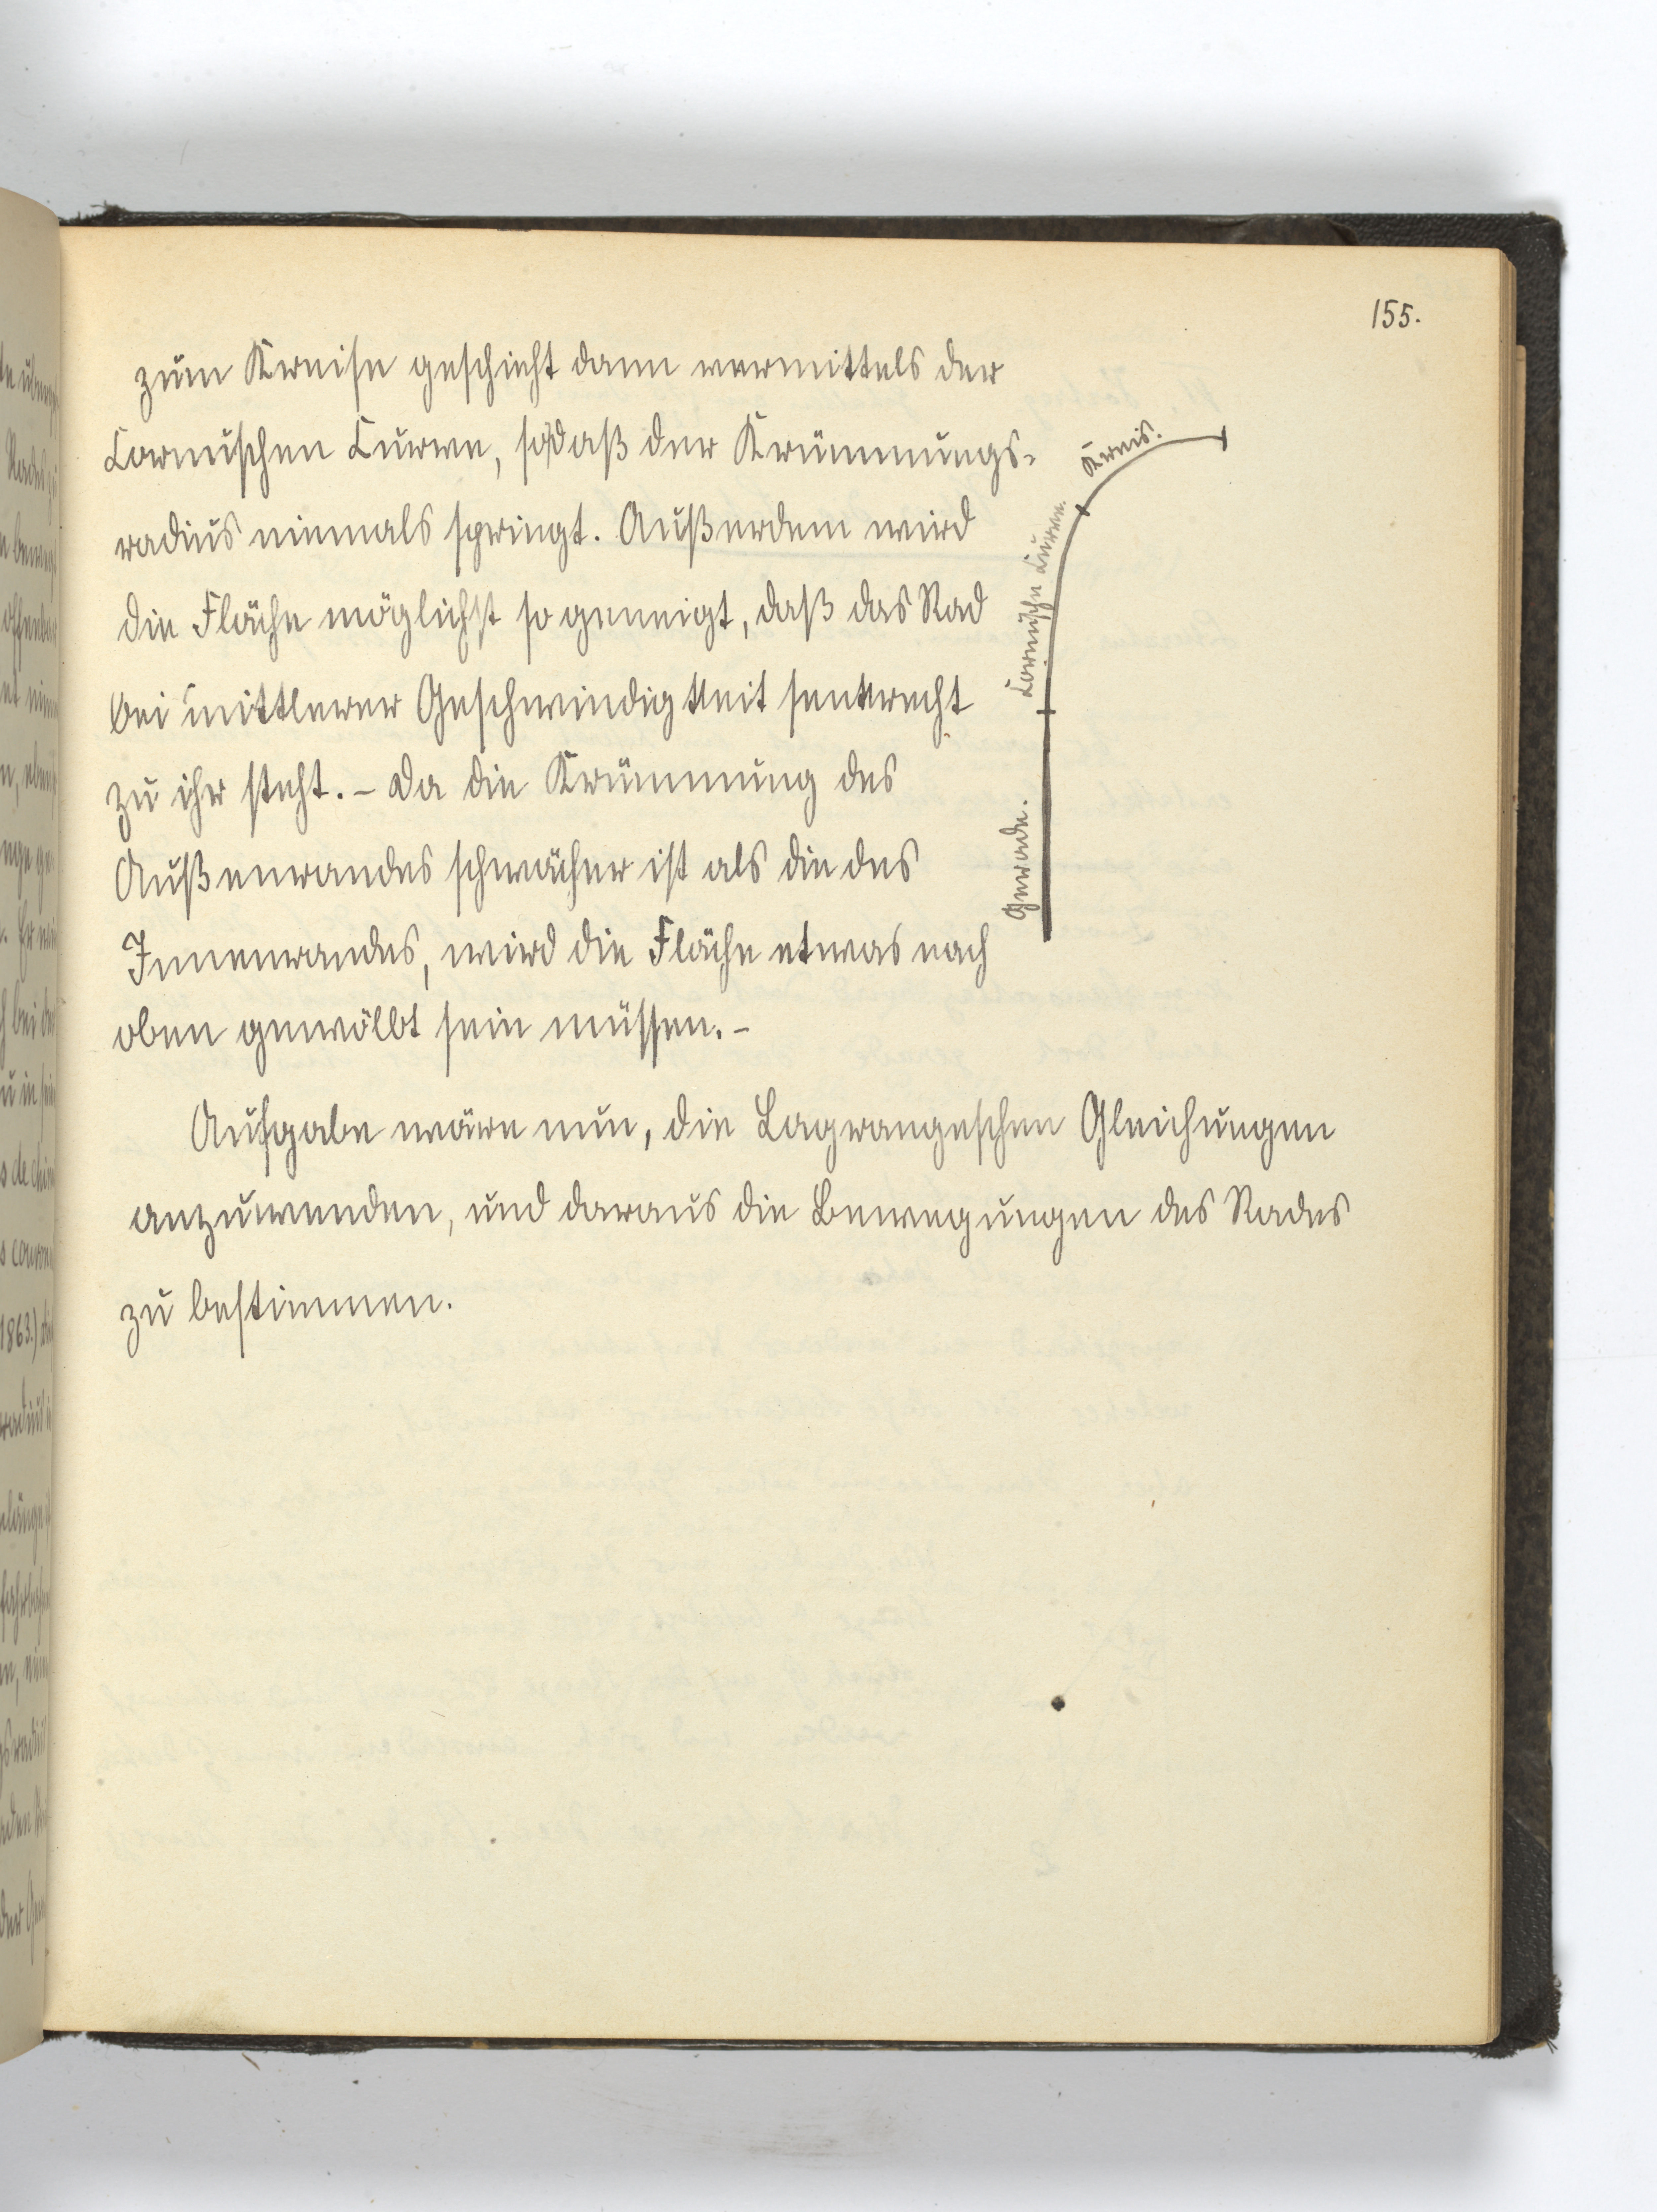 155.
zum Kreise geschieht dann vermittels der
Cornuschen Curve, sodaß der Krümmungs-
radius niemals springt. Außerdem wird
die Fläche möglichst so geneigt, daß das Rad
bei mittlerer Geschwindigkeit senkrecht
zu ihr steht. – Da die Krümmung des
Außenrandes schwächer ist als die des
Innenrandes, wird die Fläche etwas nach
oben gewölbt sein müssen. –
Kreis.
Cornusche Curve.
Gerade.
Aufgabe wäre nun, die Lagrangeschen Gleichungen
anzuwenden, und daraus die Bewegungen des Rades
zu bestimmen.